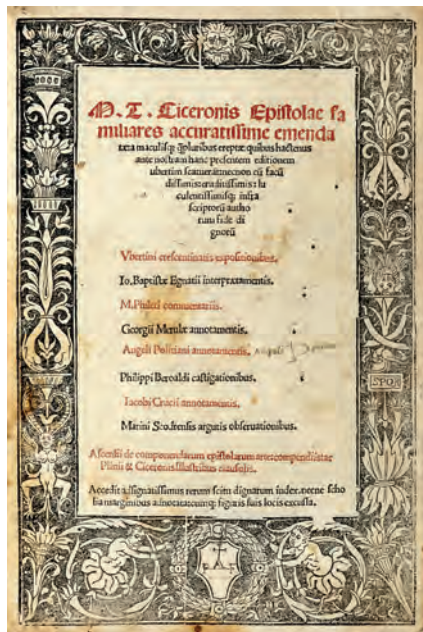 M. T. Ciceronis Epistolae fa
miliares accuratissime emenda
tæ:a maculisq; q̃pluribus ereptæ quibus hactenus
ante nostram hanc presentem editionem
ubertim scatuerãt:necnon cũ facũ
dissimis:eruditissimis:lu
culentissimisq; infra
scriptorũ autho
rum fide di
gnorũ
Vbertini crescentinatis expositionibus.
Io. Baptistæ Egnatii interpræetamentis.
M. Phileti commentariis.
Georgii Merulæ annotamentis.
Angeli Politiani annotamentis.
Philippi Beroaldi castigationibus.
Iacobi Crucii annotamentis.
Marini argutis obseruationibus.
Ascensii de componendarum epistolarum arte:compendiistae
Plinii & Ciceronis illustribus clausulis.
Accedit assignatissimus rerum scitu dignarum index.necne scho
lia marginibus figuris suis locis excussa.
SPQR